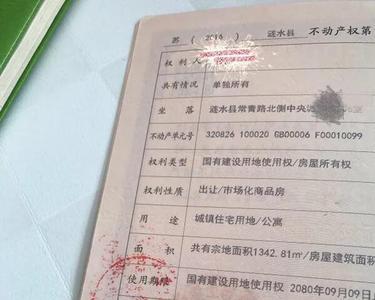 苏（2016）涟水县 不动产权第
权利人
共有情况 单独所有
坐落 涟水县常青路北侧中央
不动产单元号 320826 100020 GB00006 F00010099
权利类型 国有建设用地使用权/房屋所有权
权利性质 出让/市场化商品房
用途 城镇住宅用地/公寓
面积 共有宗地面积1342.81㎡/房屋建筑面积
使用期限 国有建设用地使用权 2080年09月09日